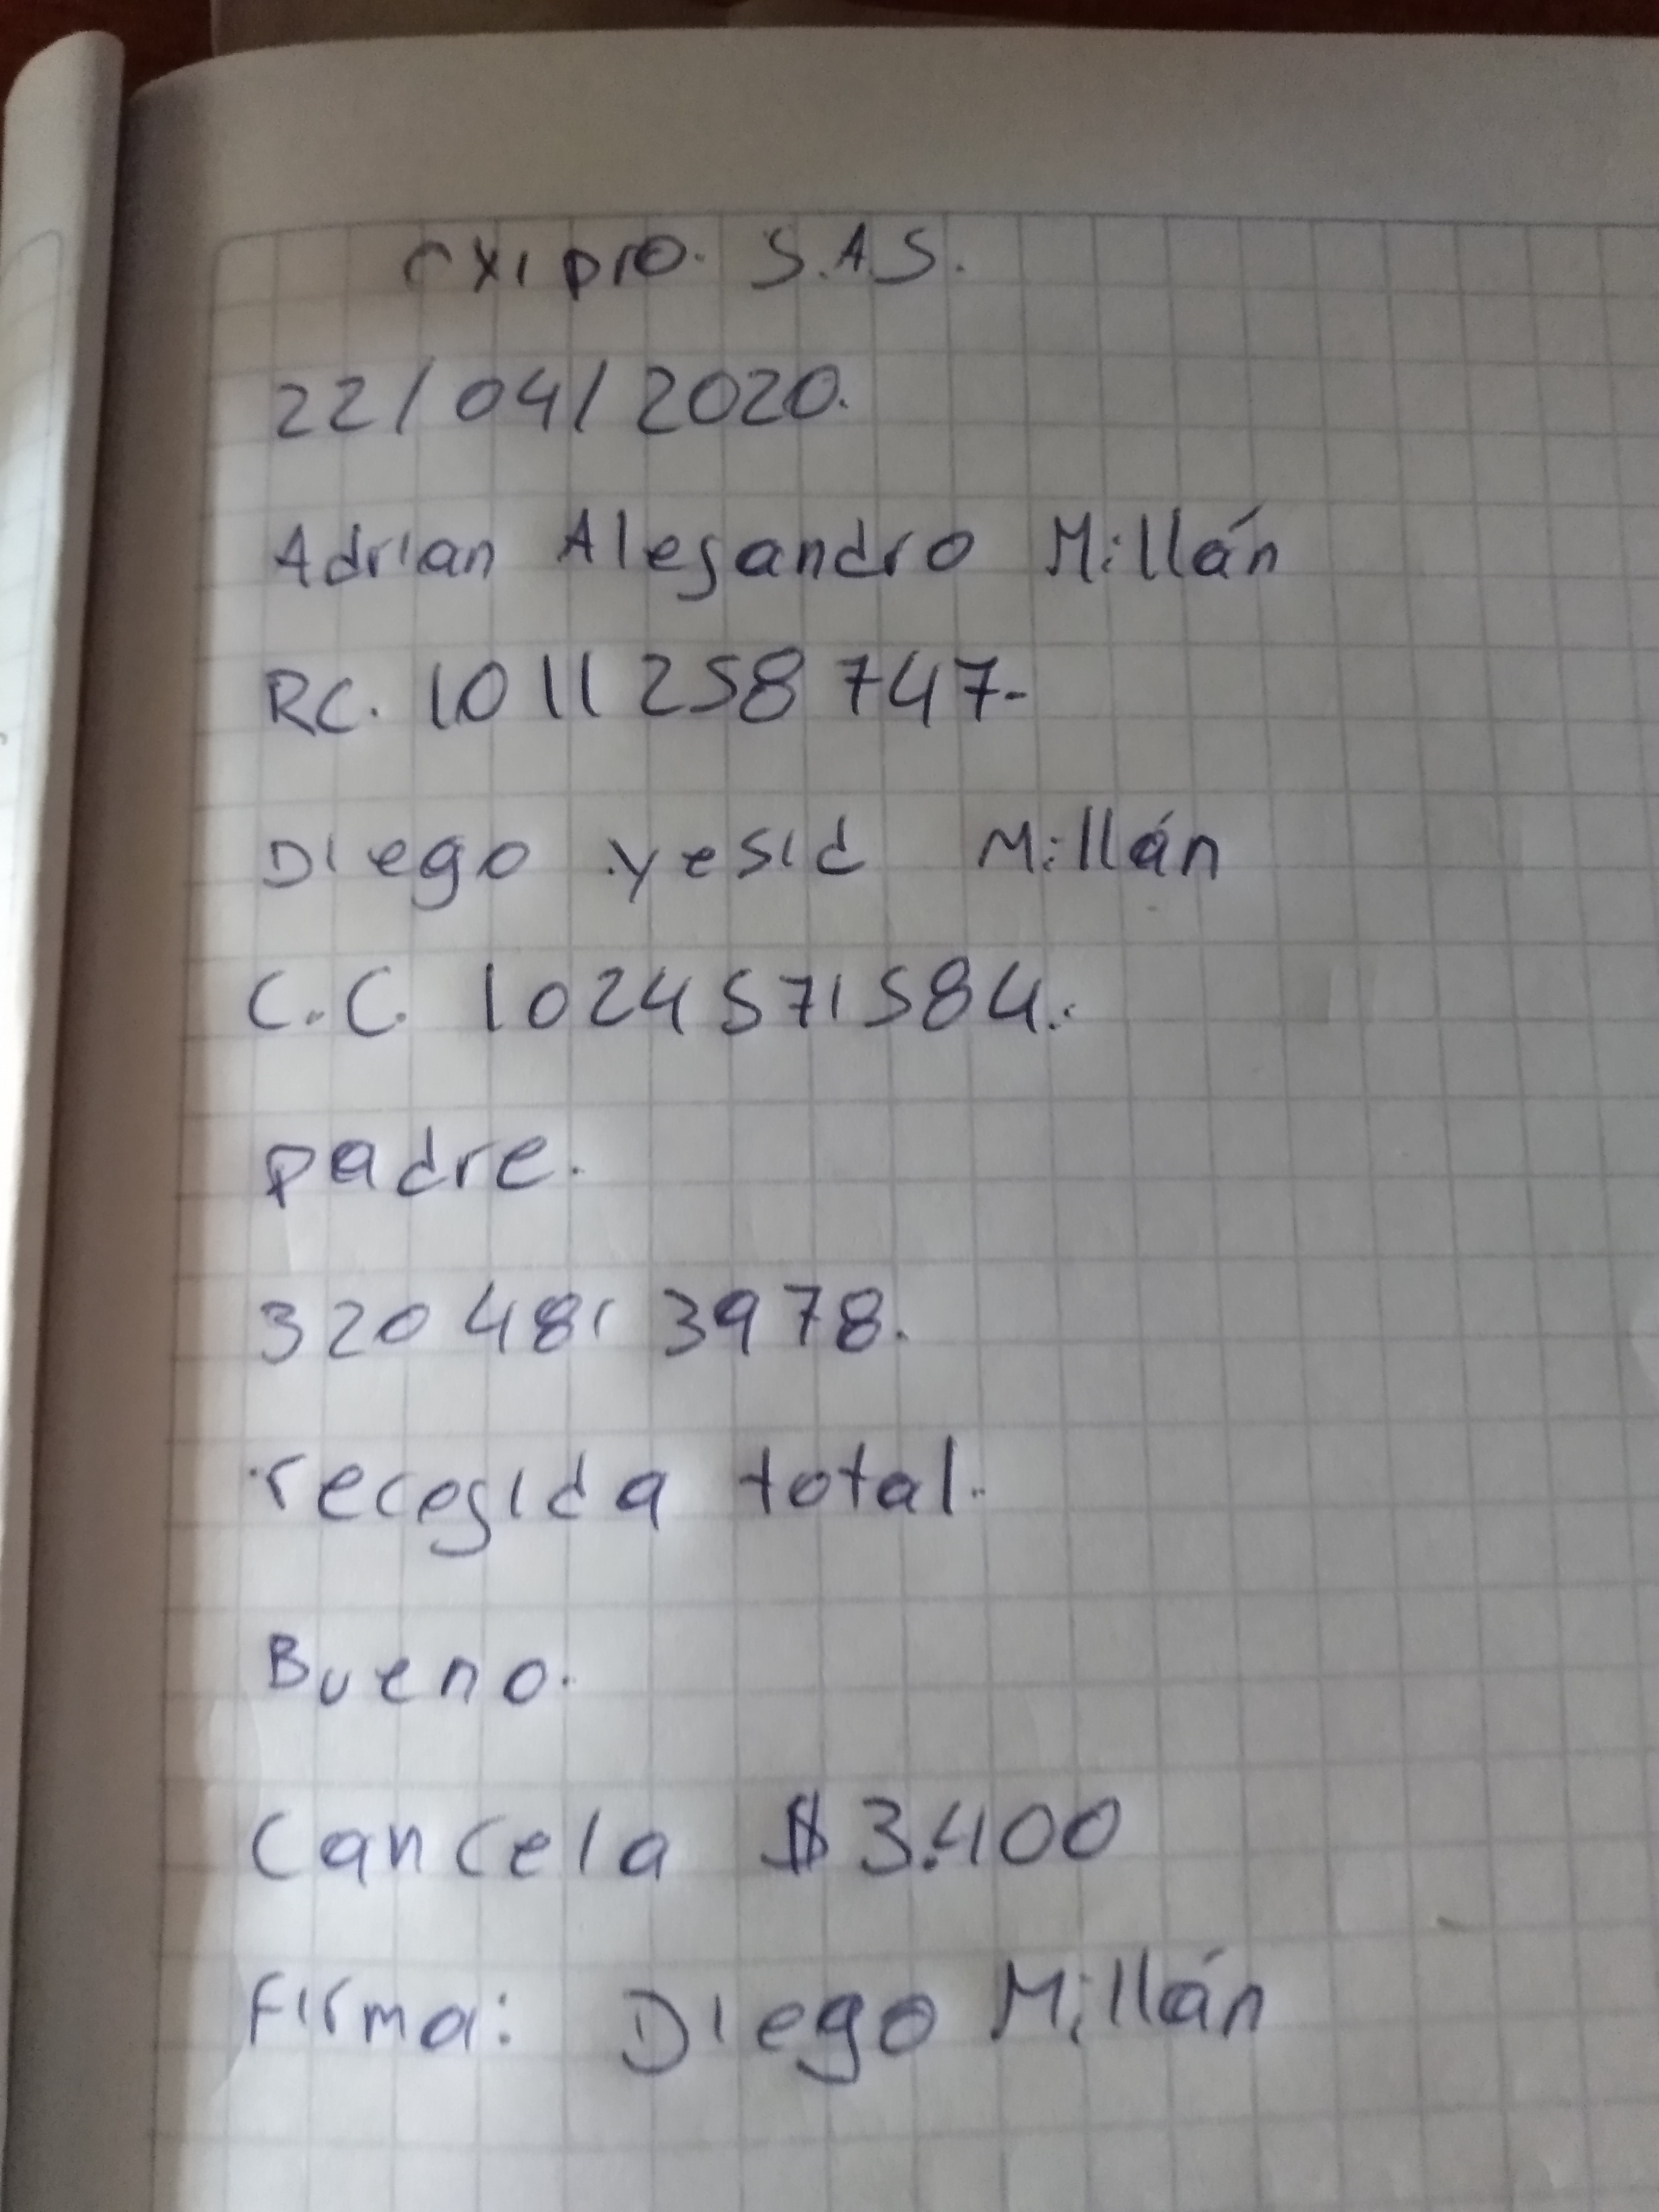 exipro. S.A.S.
22/04/2020.
Adrian Alejandro Millán
RC. 1011258747-
Diego yesid Millán
C.C. 1024571584.
padre.
320 481 3978.
recogida total.
Bueno.
Cancela $3.400
Firma: Diego Millán